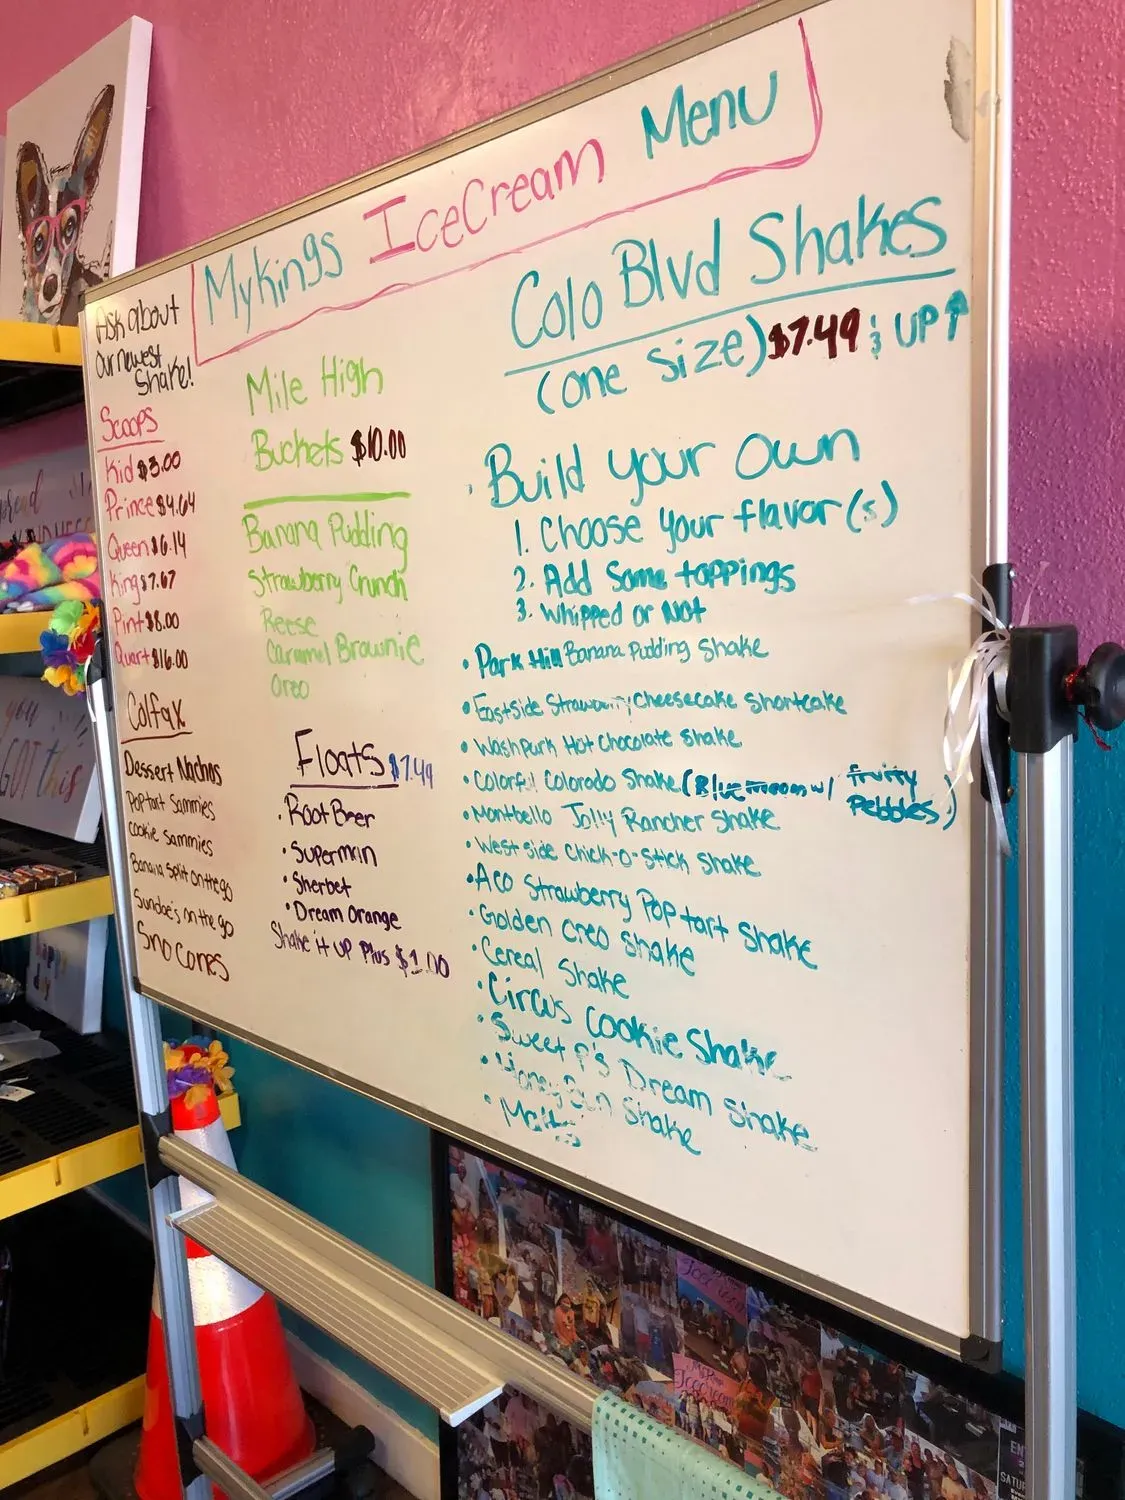 Mykings IceCream Menu
Ask about
our newest
shake!
Scoops
Kid $3.00
Prince $4.64
Queen $6.14
King $7.67
Pint $8.00
Quart $16.00
Colfax
Dessert Nachos
Poptart Sammies
Cookie Sammies
Banana Split on the go
Sundae's on the go
Sno Cones
Mile High
Buckets $10.00
Banana Pudding
Strawberry Crunch
Reese
Caramel Brownie
Oreo
Floats $7.49
• Root Beer
• Superman
• Sherbet
• Dream Orange
Shake it up Plus $1.00
Colo Blvd Shakes
(one size) $7.49 & UP↑
• Build your own
1. Choose your flavor(s)
2. Add Some toppings
3. Whipped or Not
• Park Hill Banana Pudding Shake
• Eastside Strawberry Cheesecake Shortcake
• Wash Park Hot Chocolate Shake
• Colorful Colorado Shake (Blue moon w/ fruity
Pebbles)
• Montbello Jolly Rancher Shake
• West side Chick-o-Stick Shake
• Aco Strawberry Pop tart Shake
• Golden Oreo Shake
• Cereal Shake
• Circus Cookie Shake
• Sweet P's Dream Shake
• Honey Bun Shake
• Malts
GOT this
happy
day